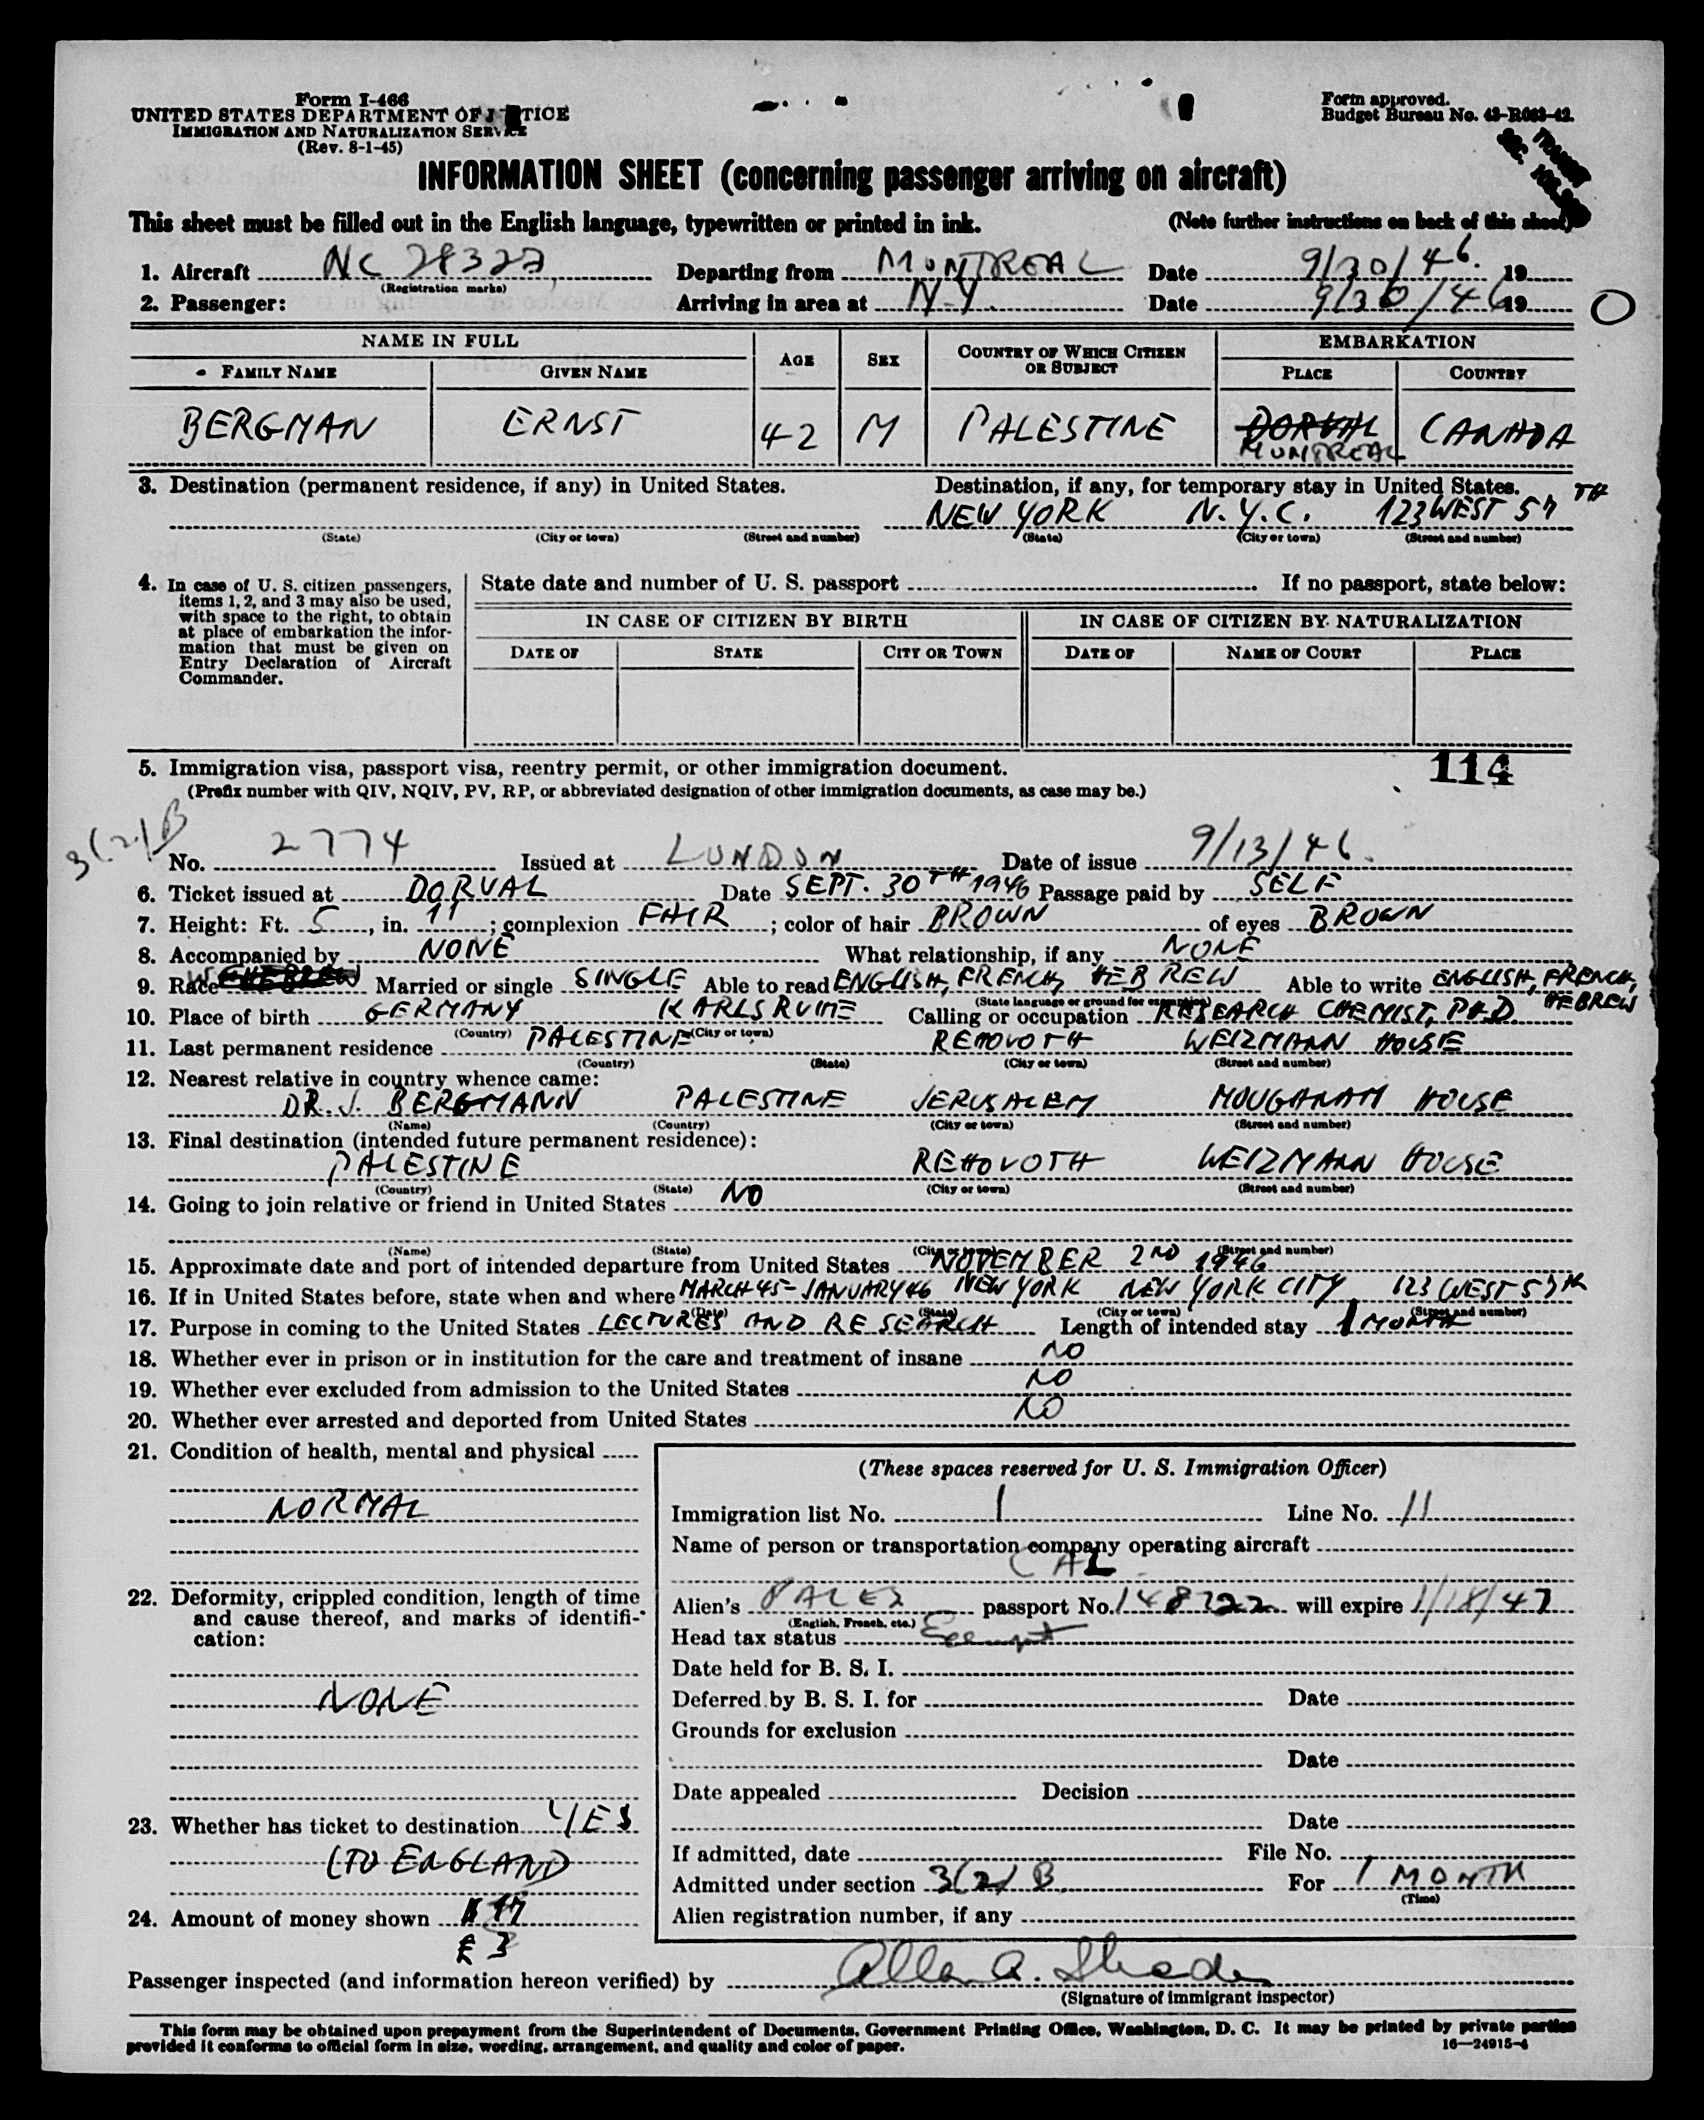 Form I-466
UNITED STATES DEPARTMENT OF JUSTICE
IMMIGRATION AND NATURALIZATION SERVICE
(Rev. 8-1-45)
Form approved.
Budget Bureau No. 43-R083-42.
INFORMATION SHEET (concerning passenger arriving on aircraft)
This sheet must be filled out in the English language, typewritten or printed in ink. (Note further instructions on back of this sheet)
1. Aircraft NC 28322 Departing from MONTREAL Date 9/30/46. 19
(Registration marks)
2. Passenger: Arriving in area at N.Y. Date 9/30/46 19
NAME IN FULL AGE SEX COUNTRY OF WHICH CITIZEN OR SUBJECT EMBARKATION
FAMILY NAME GIVEN NAME PLACE COUNTRY
BERGMAN ERNST 42 M PALESTINE DORVAL CANADA
MONTREAL
3. Destination (permanent residence, if any) in United States. Destination, if any, for temporary stay in United States.
NEW YORK N.Y.C. 123 WEST 57 TH
(State) (City or town) (Street and number) (State) (City or town) (Street and number)
4. In case of U. S. citizen passengers, items 1, 2, and 3 may also be used, with space to the right, to obtain at place of embarkation the infor-mation that must be given on Entry Declaration of Aircraft Commander.
State date and number of U. S. passport If no passport, state below:
IN CASE OF CITIZEN BY BIRTH IN CASE OF CITIZEN BY NATURALIZATION
DATE OF STATE CITY OR TOWN DATE OF NAME OF COURT PLACE
114
5. Immigration visa, passport visa, reentry permit, or other immigration document.
(Prefix number with QIV, NQIV, PV, RP, or abbreviated designation of other immigration documents, as case may be.)
3(2)B
No. 2774 Issued at LONDON Date of issue 9/13/46.
6. Ticket issued at DORVAL Date SEPT. 30TH 1946 Passage paid by SELF
7. Height: Ft. 5, in. 11; complexion FAIR; color of hair BROWN of eyes BROWN
8. Accompanied by NONE What relationship, if any NONE
9. Race W HEBREW Married or single SINGLE Able to read ENGLISH, FRENCH, HEBREW Able to write ENGLISH, FRENCH, HEBREW
(State language or ground for exemption)
10. Place of birth GERMANY KARLSRUHE Calling or occupation RESEARCH CHEMIST, PH.D
(Country) (City or town)
11. Last permanent residence PALESTINE REHOVOTH WEIZMANN HOUSE
(Country) (State) (City or town) (Street and number)
12. Nearest relative in country whence came:
DR. J. BERGMANN PALESTINE JERUSALEM MOUGANAM HOUSE
(Name) (Country) (City or town) (Street and number)
13. Final destination (intended future permanent residence):
PALESTINE REHOVOTH WEIZMANN HOUSE
(Country) (State) (City or town) (Street and number)
14. Going to join relative or friend in United States NO
(Name) (State) (City or town) (Street and number)
15. Approximate date and port of intended departure from United States NOVEMBER 2ND 1946
16. If in United States before, state when and where MARCH 45 - JANUARY 46 NEW YORK NEW YORK CITY 123 WEST 57TH
(Date) (State) (City or town) (Street and number)
17. Purpose in coming to the United States LECTURES AND RESEARCH Length of intended stay 1 MONTH
18. Whether ever in prison or in institution for the care and treatment of insane NO
19. Whether ever excluded from admission to the United States NO
20. Whether ever arrested and deported from United States NO
21. Condition of health, mental and physical
NORMAL
22. Deformity, crippled condition, length of time and cause thereof, and marks of identifi-cation:
NONE
23. Whether has ticket to destination YES
(TO ENGLAND
24. Amount of money shown $ 17
£ 3
(These spaces reserved for U. S. Immigration Officer)
Immigration list No. 1 Line No. 11
Name of person or transportation company operating aircraft
CAL
Alien's PALES passport No. 148722 will expire 1/18/47
(English, French, etc.)
Head tax status Exempt
Date held for B. S. I.
Deferred by B. S. I. for Date
Grounds for exclusion
Date
Date appealed Decision
Date
If admitted, date File No.
Admitted under section 3(2) B For 1 MONTH
(Time)
Alien registration number, if any
Passenger inspected (and information hereon verified) by Allen A.
(Signature of immigrant inspector)
This form may be obtained upon prepayment from the Superintendent of Documents, Government Printing Office, Washington, D. C. It may be printed by private parties
provided it conforms to official form in size, wording, arrangement, and quality and color of paper. 16—24915-4